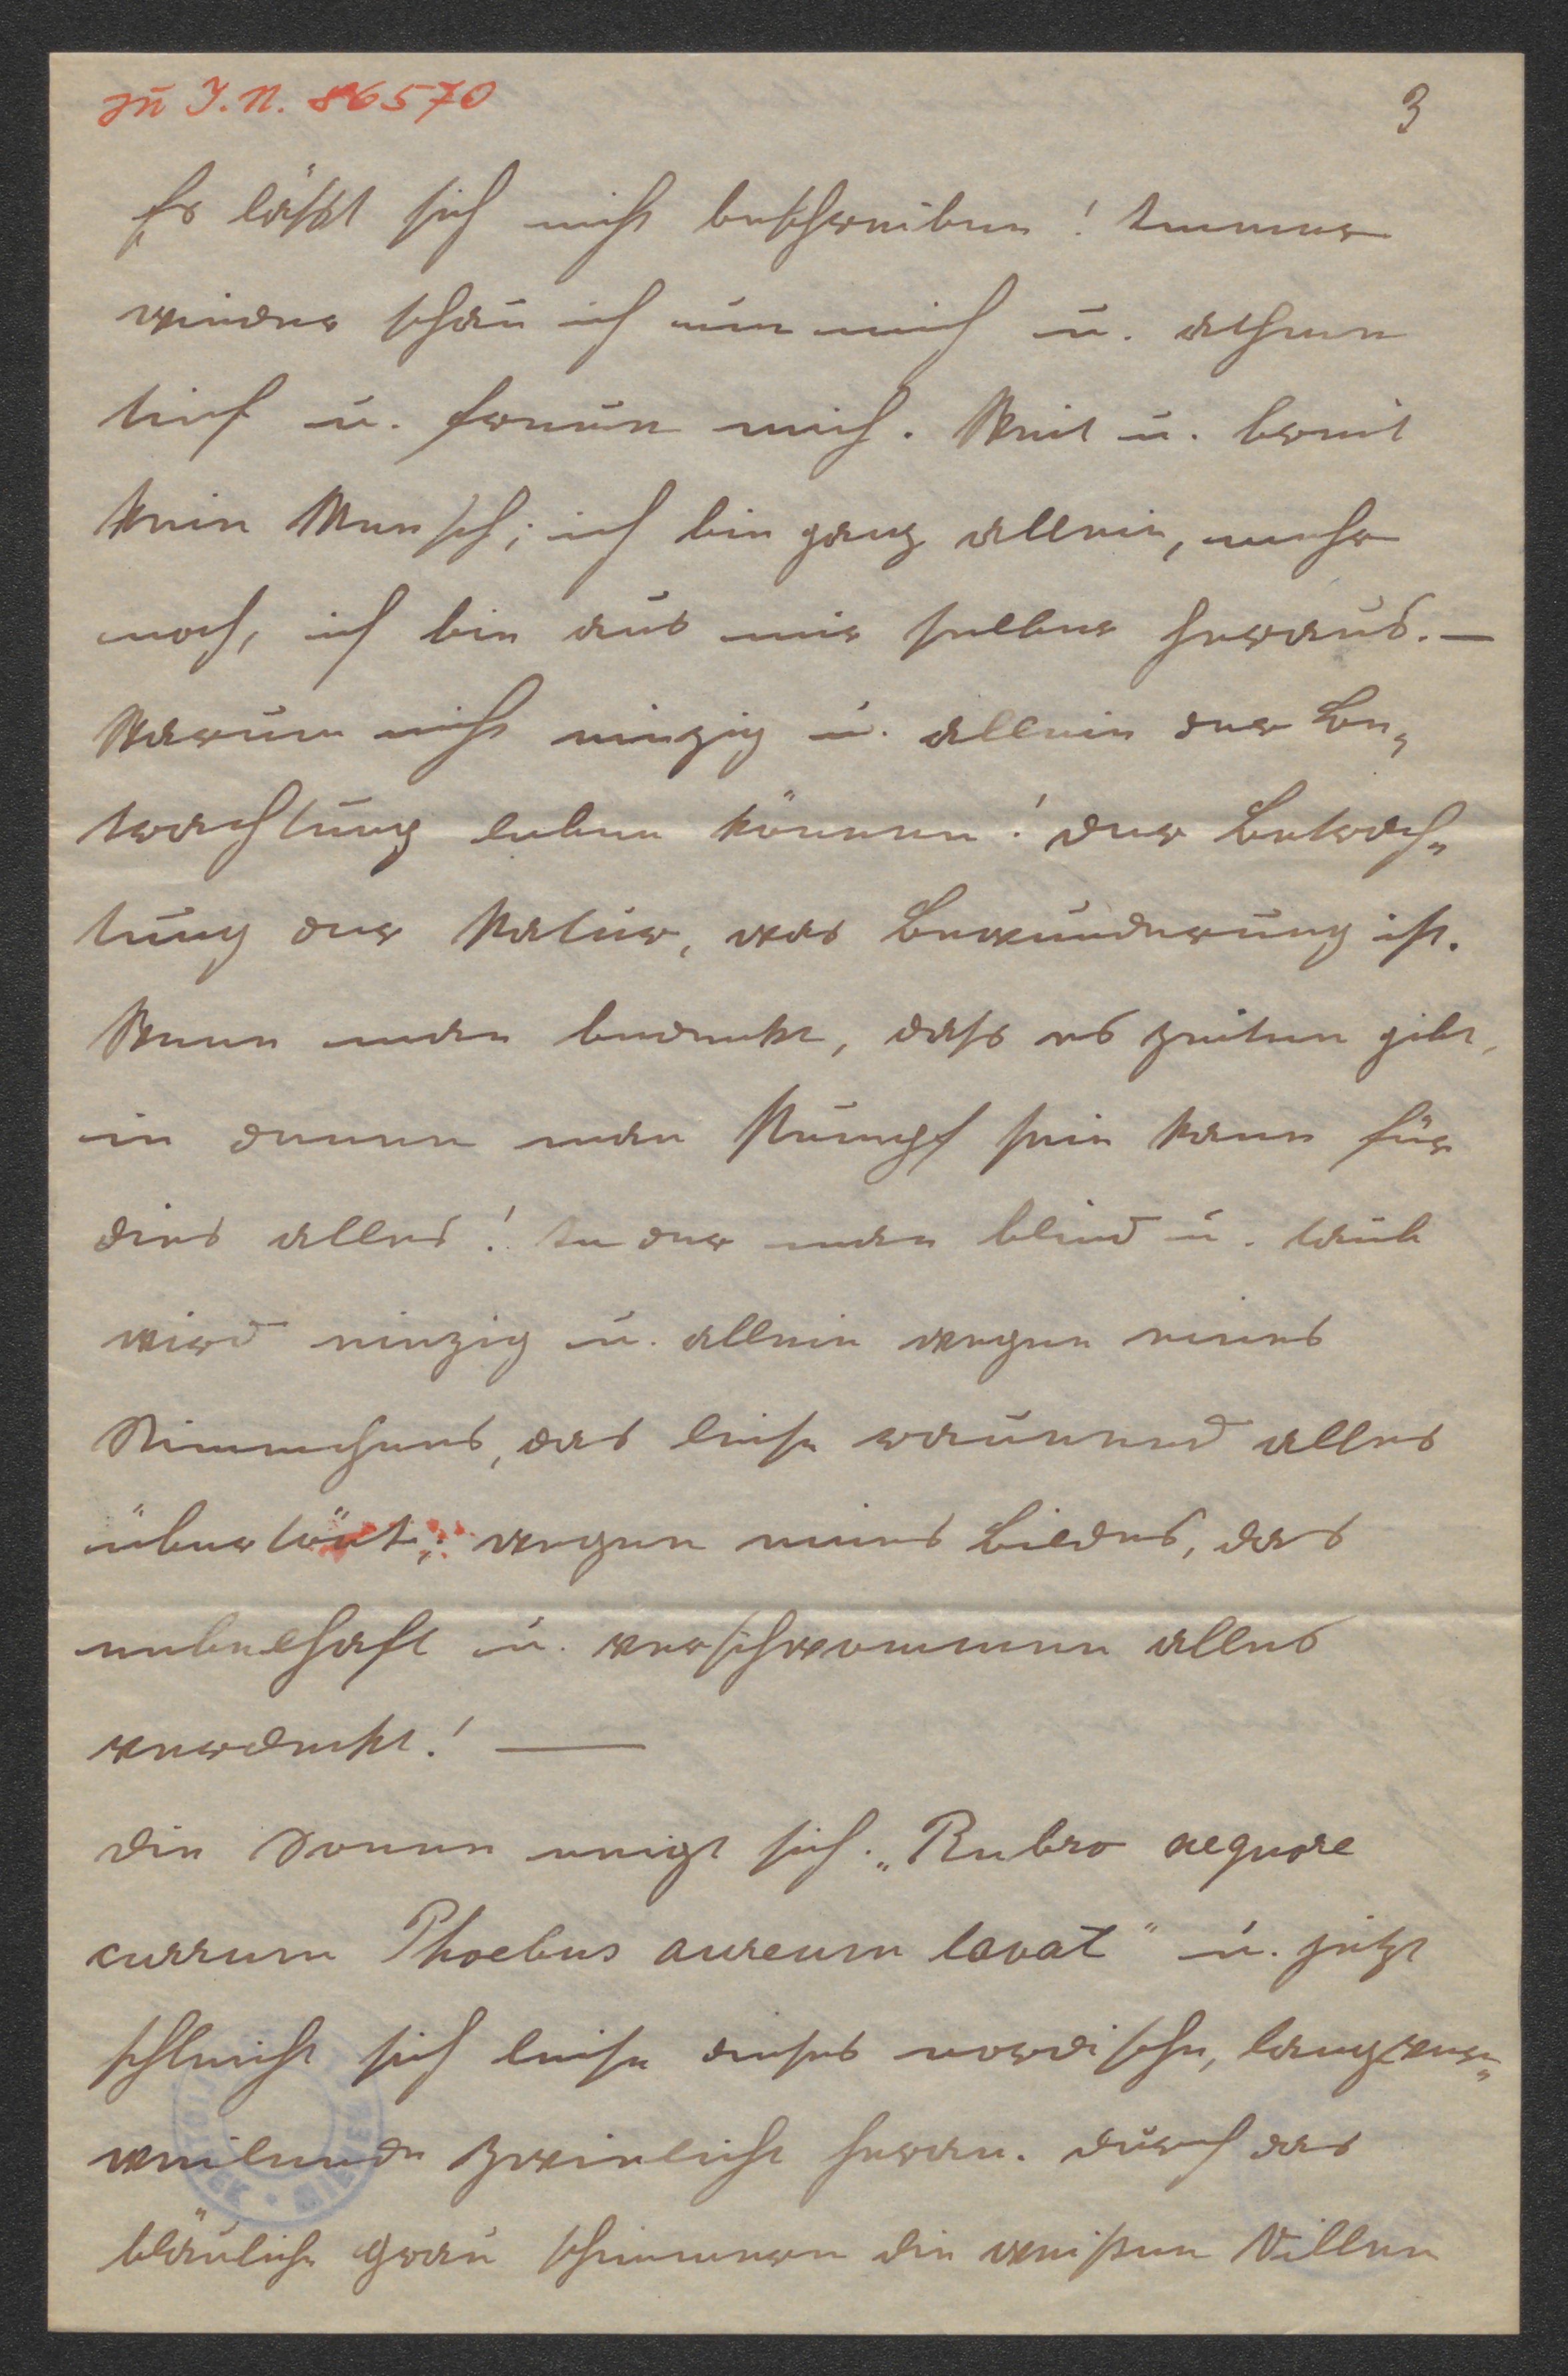 zu I.N. 86570
3
Es läßt sich nicht beschreiben! Immer
wieder schau ich um mich u. athme
tief u. freue mich. Weit u. breit
kein Mensch; ich bin ganz allein, mehr
noch, ich bin aus mir selber heraus. —
Warum nicht einzig u. allein der Be-
trachtung leben können! der Betrach-
tung der Natur, was Bewunderung ist.
Wenn man bedenkt, dass es Zeiten gibt,
in denen man stumpf sein kann für
dies alles! In der man blind u. taub
wird einzig u. allein wegen eines
Stimmchens, das leise raunend alles
übertönt, wegen eines Bildes, das
nebelhaft u. verschwommen alles
verdeckt! —
Die Sonne neigt sich. „Rubro aequore
currum Phoebus aureum lavat" u. jetzt
schleicht sich leise dieses nordische, langver-
weilende Zwielicht heran. Durch das
bläuliche Grau schimmern die weißen Villen